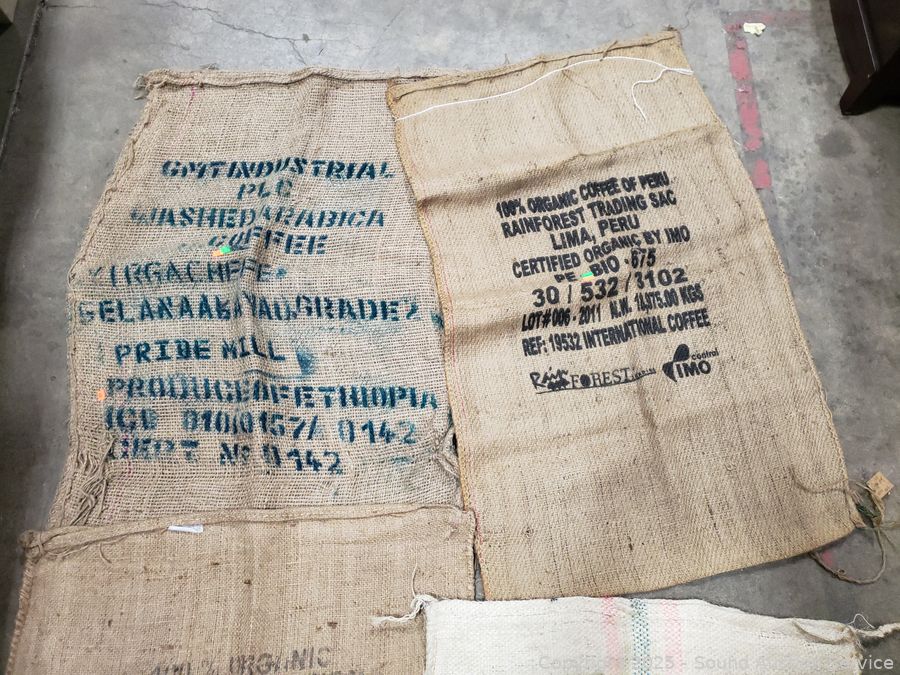 GMTINDUSTRIAL
PLC
WASHEDARABICA
COFFEE
YIRGACHEFE
GELANAABAYAGRADE2
PRIDE MILL
PRODUCEOFETHIOPIA
ICO 010/0157/ 0142
CERT No 0142
100% ORGANIC COFFEE OF PERU
RAINFOREST TRADING SAC
LIMA, PERU
CERTIFIED ORGANIC BY IMO
PE BIO 675
30 / 532 / 3102
LOT# 006 - 2011 N.W. 18,975.00 KGS
REF: 19532 INTERNATIONAL COFFEE
RAIN FOREST
control
IMO
100% ORGANIC
Copyright 2025 - Sound Auction Service